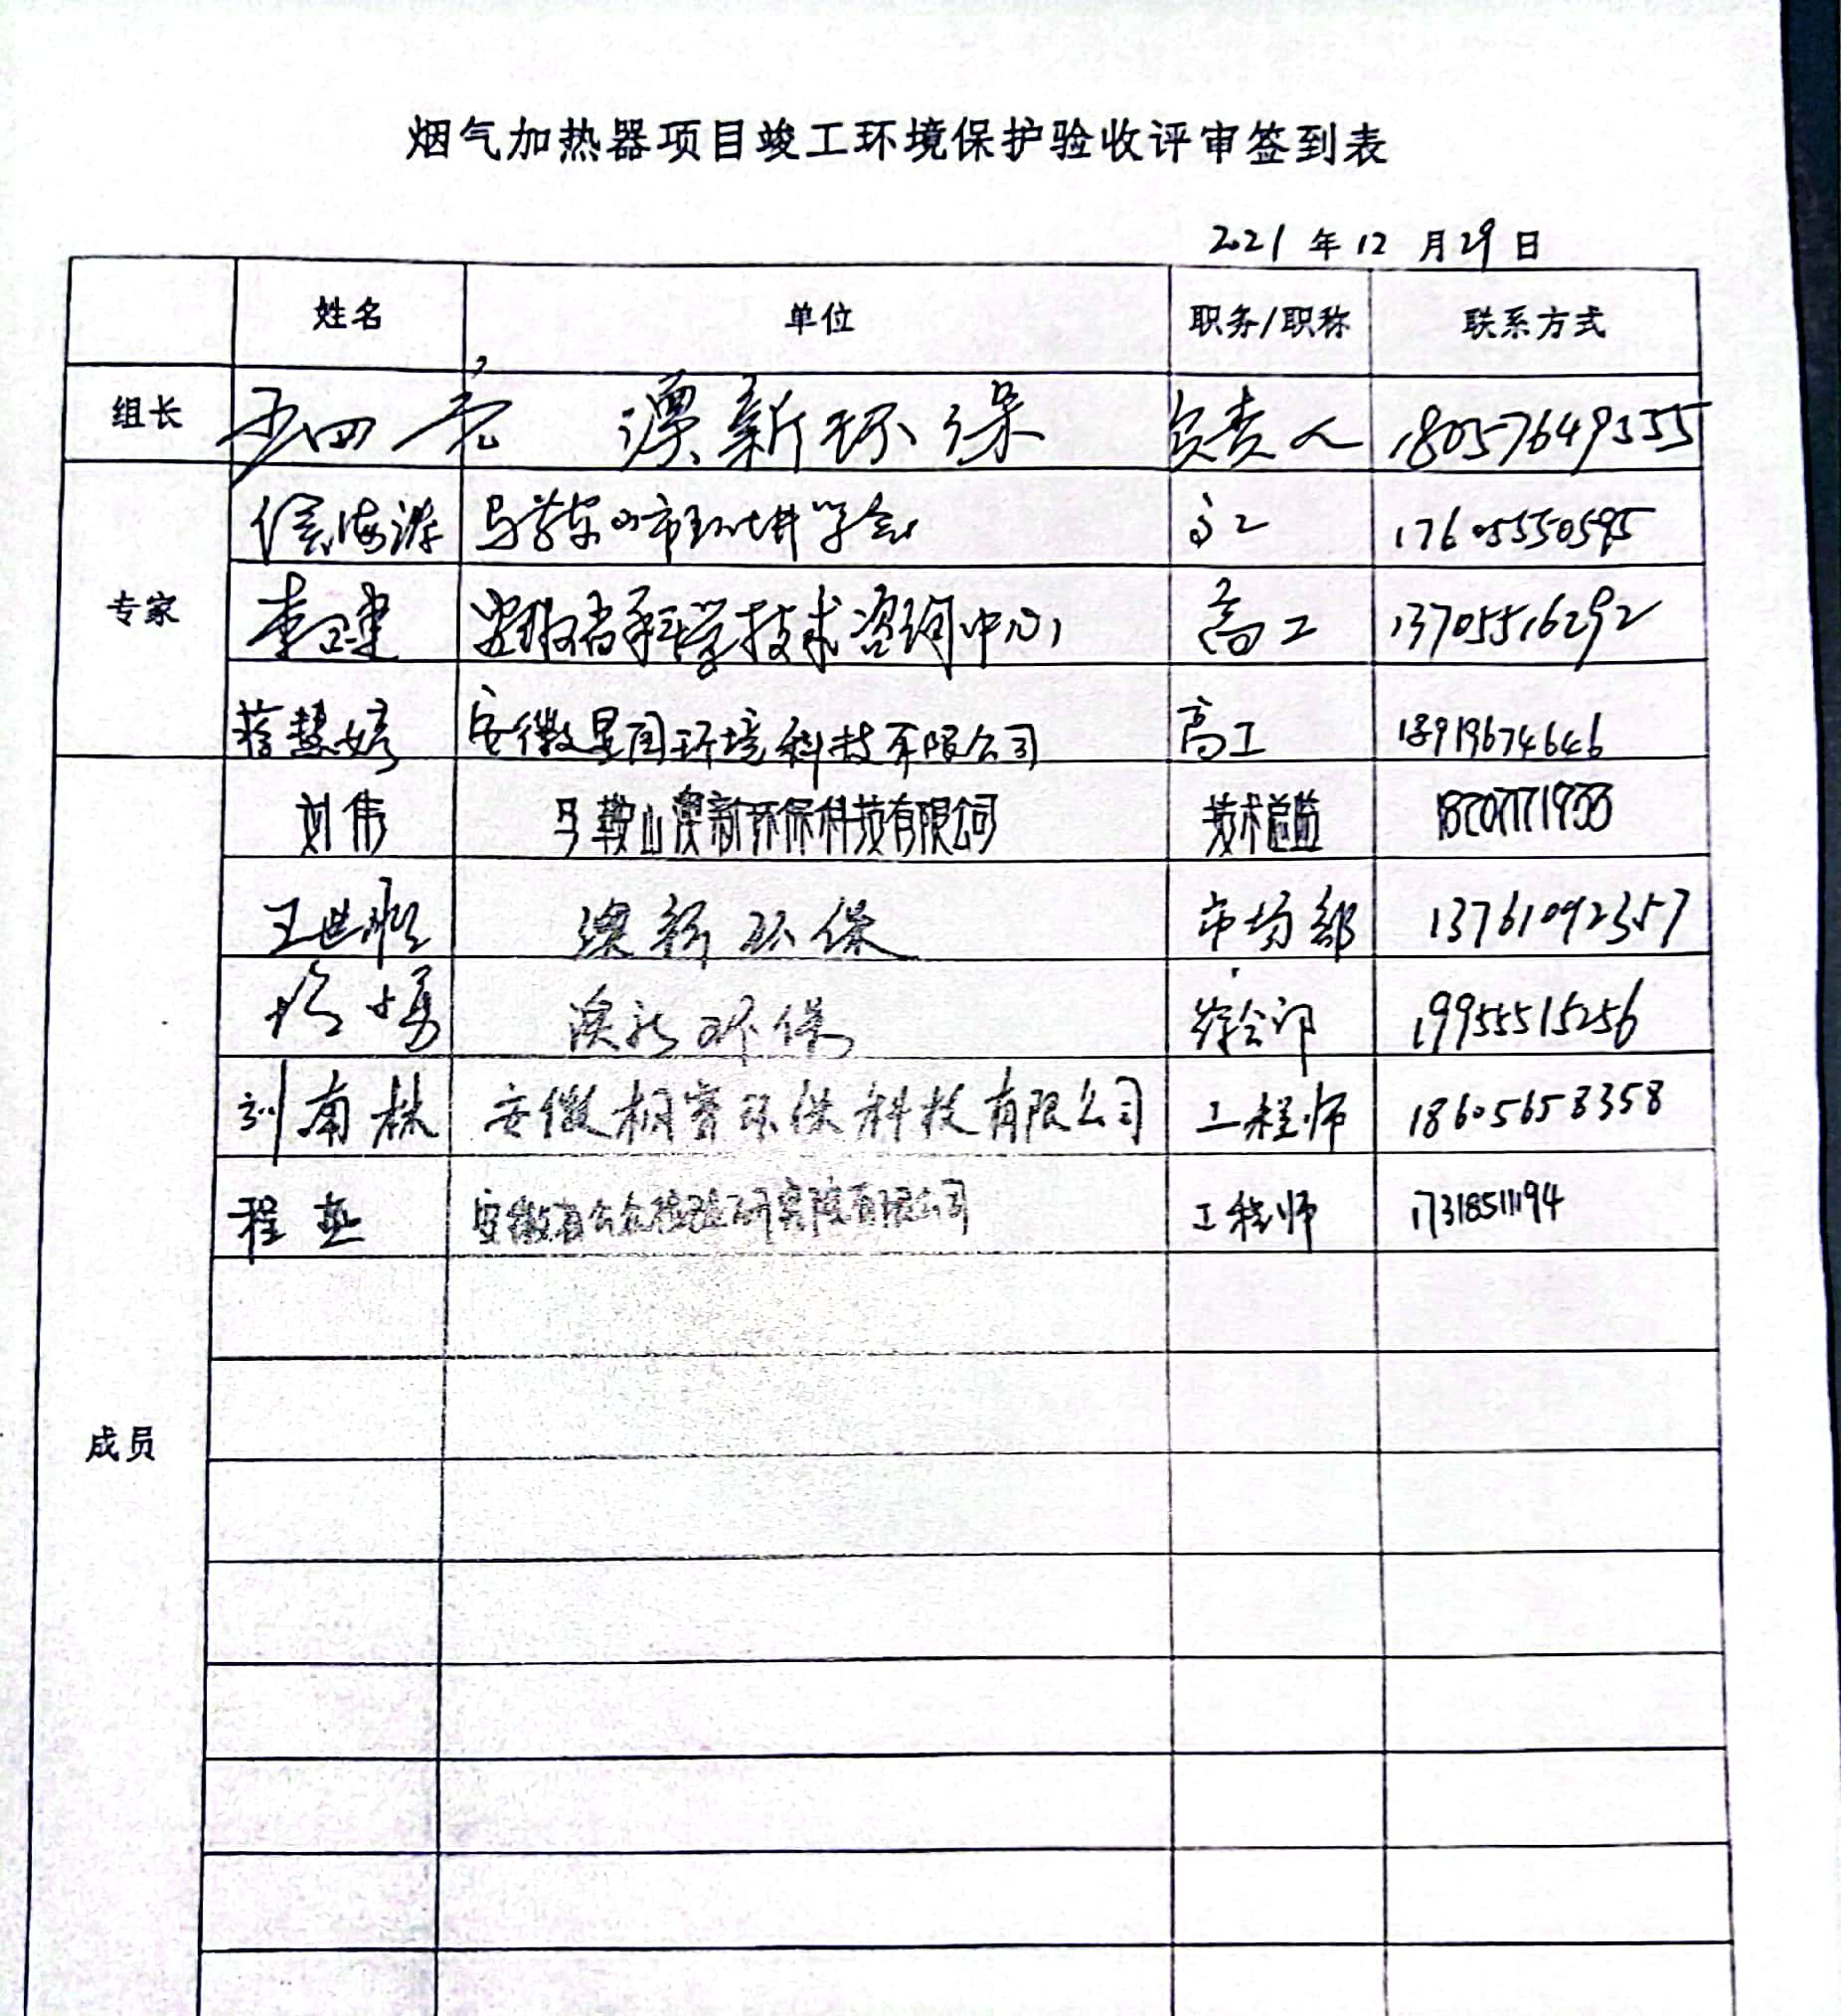 烟气加热器项目竣工环境保护验收评审签到表
2021 年 12 月 29 日
姓名 单位 职务/职称 联系方式
组长 澳新环保 负责人 18057649555
侯海游 马鞍山市环境科学学会 高工 17605550595
专家 李卫建 安徽省科学技术咨询中心 高工 13705516292
蒋慧婷 安徽显闰环境科技有限公司 高工 18919674646
刘伟 马鞍山澳新环保科技有限公司 技术总监
王世顺 澳新环保 市场部 13761092357
澳新环保 综合部 19955515256
刘南林 安徽桐赛环保科技有限公司 工程师 18605658358
程 工程师 17318511194
成员